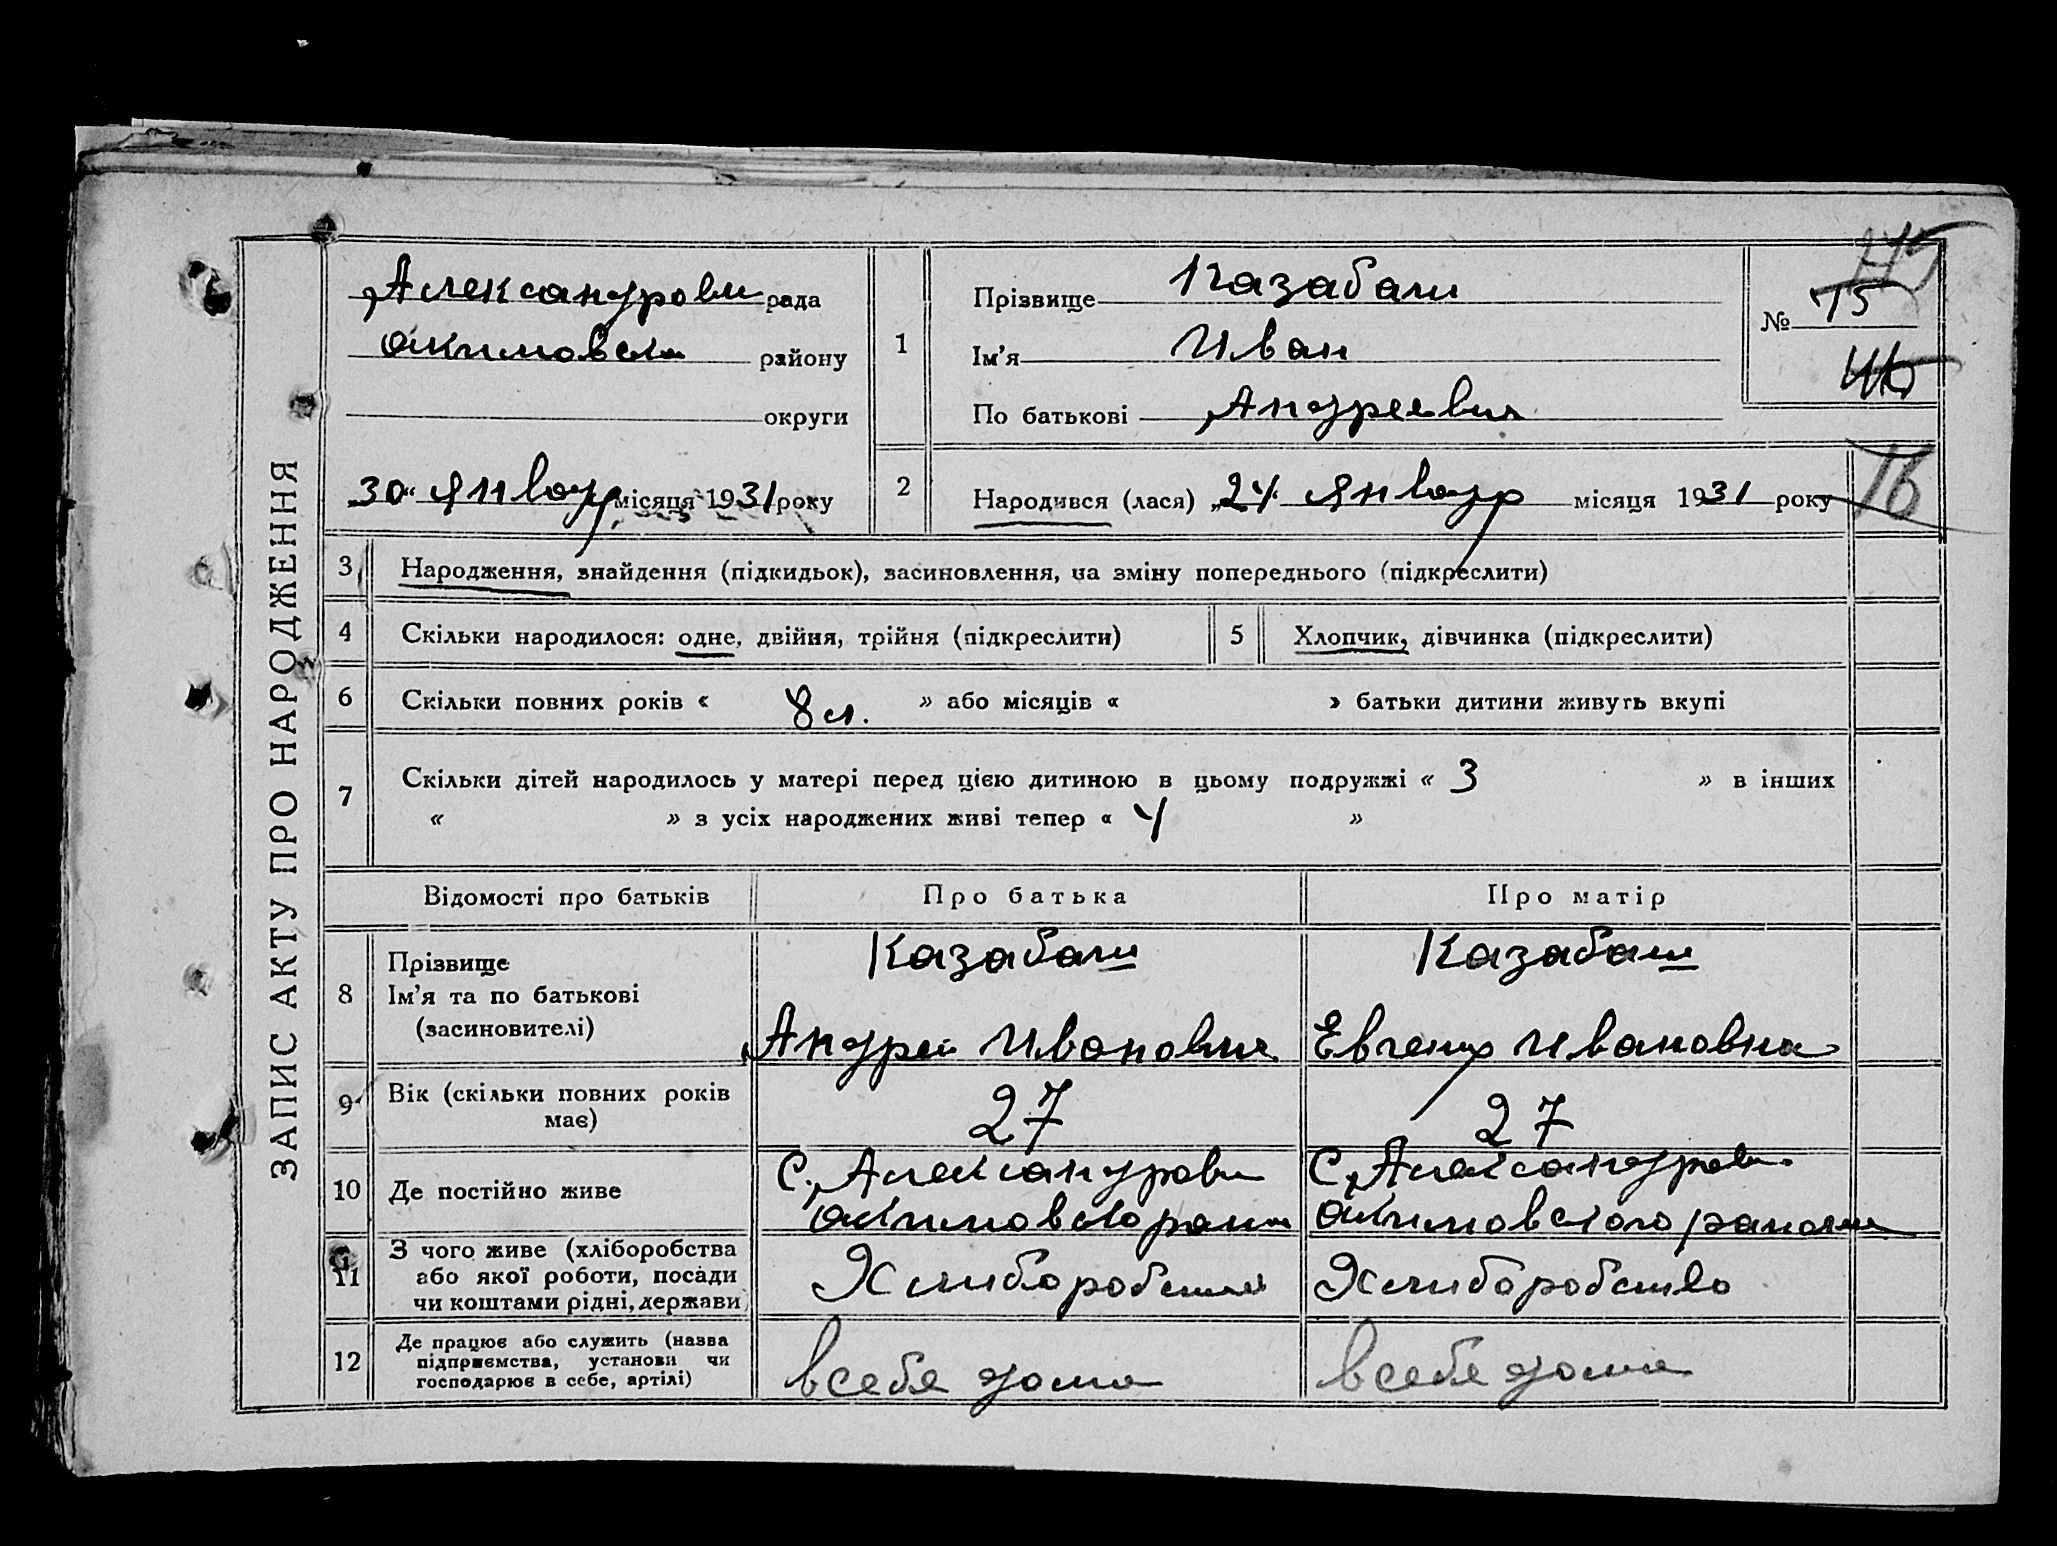 ЗАПИС АКТУ ПРО НАРОДЖЕННЯ
Александровк рада
Акимовск району
округи
„30“ Января місяця 1931 року
1
Прізвище Казабаш
Ім'я Иван
По батькові Андреевич
№ 15
16
2
Народився (лася) „24“ Января місяця 1931 року
3 Народження, знайдення (підкидьок), засиновлення, на зміну попереднього (підкреслити)
4 Скільки народилося: одне, двійня, трійня (підкреслити)
5 Хлопчик, дівчинка (підкреслити)
6 Скільки повних років « 8 л. » або місяців « » батьки дитини живуть вкупі
7 Скільки дітей народилось у матері перед цією дитиною в цьому подружжі « 3 » в інших
« » з усіх народжених живі тепер « 4 »
Відомості про батьків Про батька Про матір
8 Прізвище
Ім'я та по батькові
(засиновителі)
Казабаш
Андрей Иванович
Казабаш
Евгения Ивановна
9 Вік (скільки повних років
має)
27
27
10 Де постійно живе
С. Александровк
Акимовского район
С. Александровк
Акимовского района
11 З чого живе (хліборобства
або якої роботи, посади
чи коштами рідні, держави)
Хлиборобство
Хлиборобство
12 Де працює або служить (назва
підприємства, установи чи
господарює в себе, артілі)
в себе дома
в себе дома